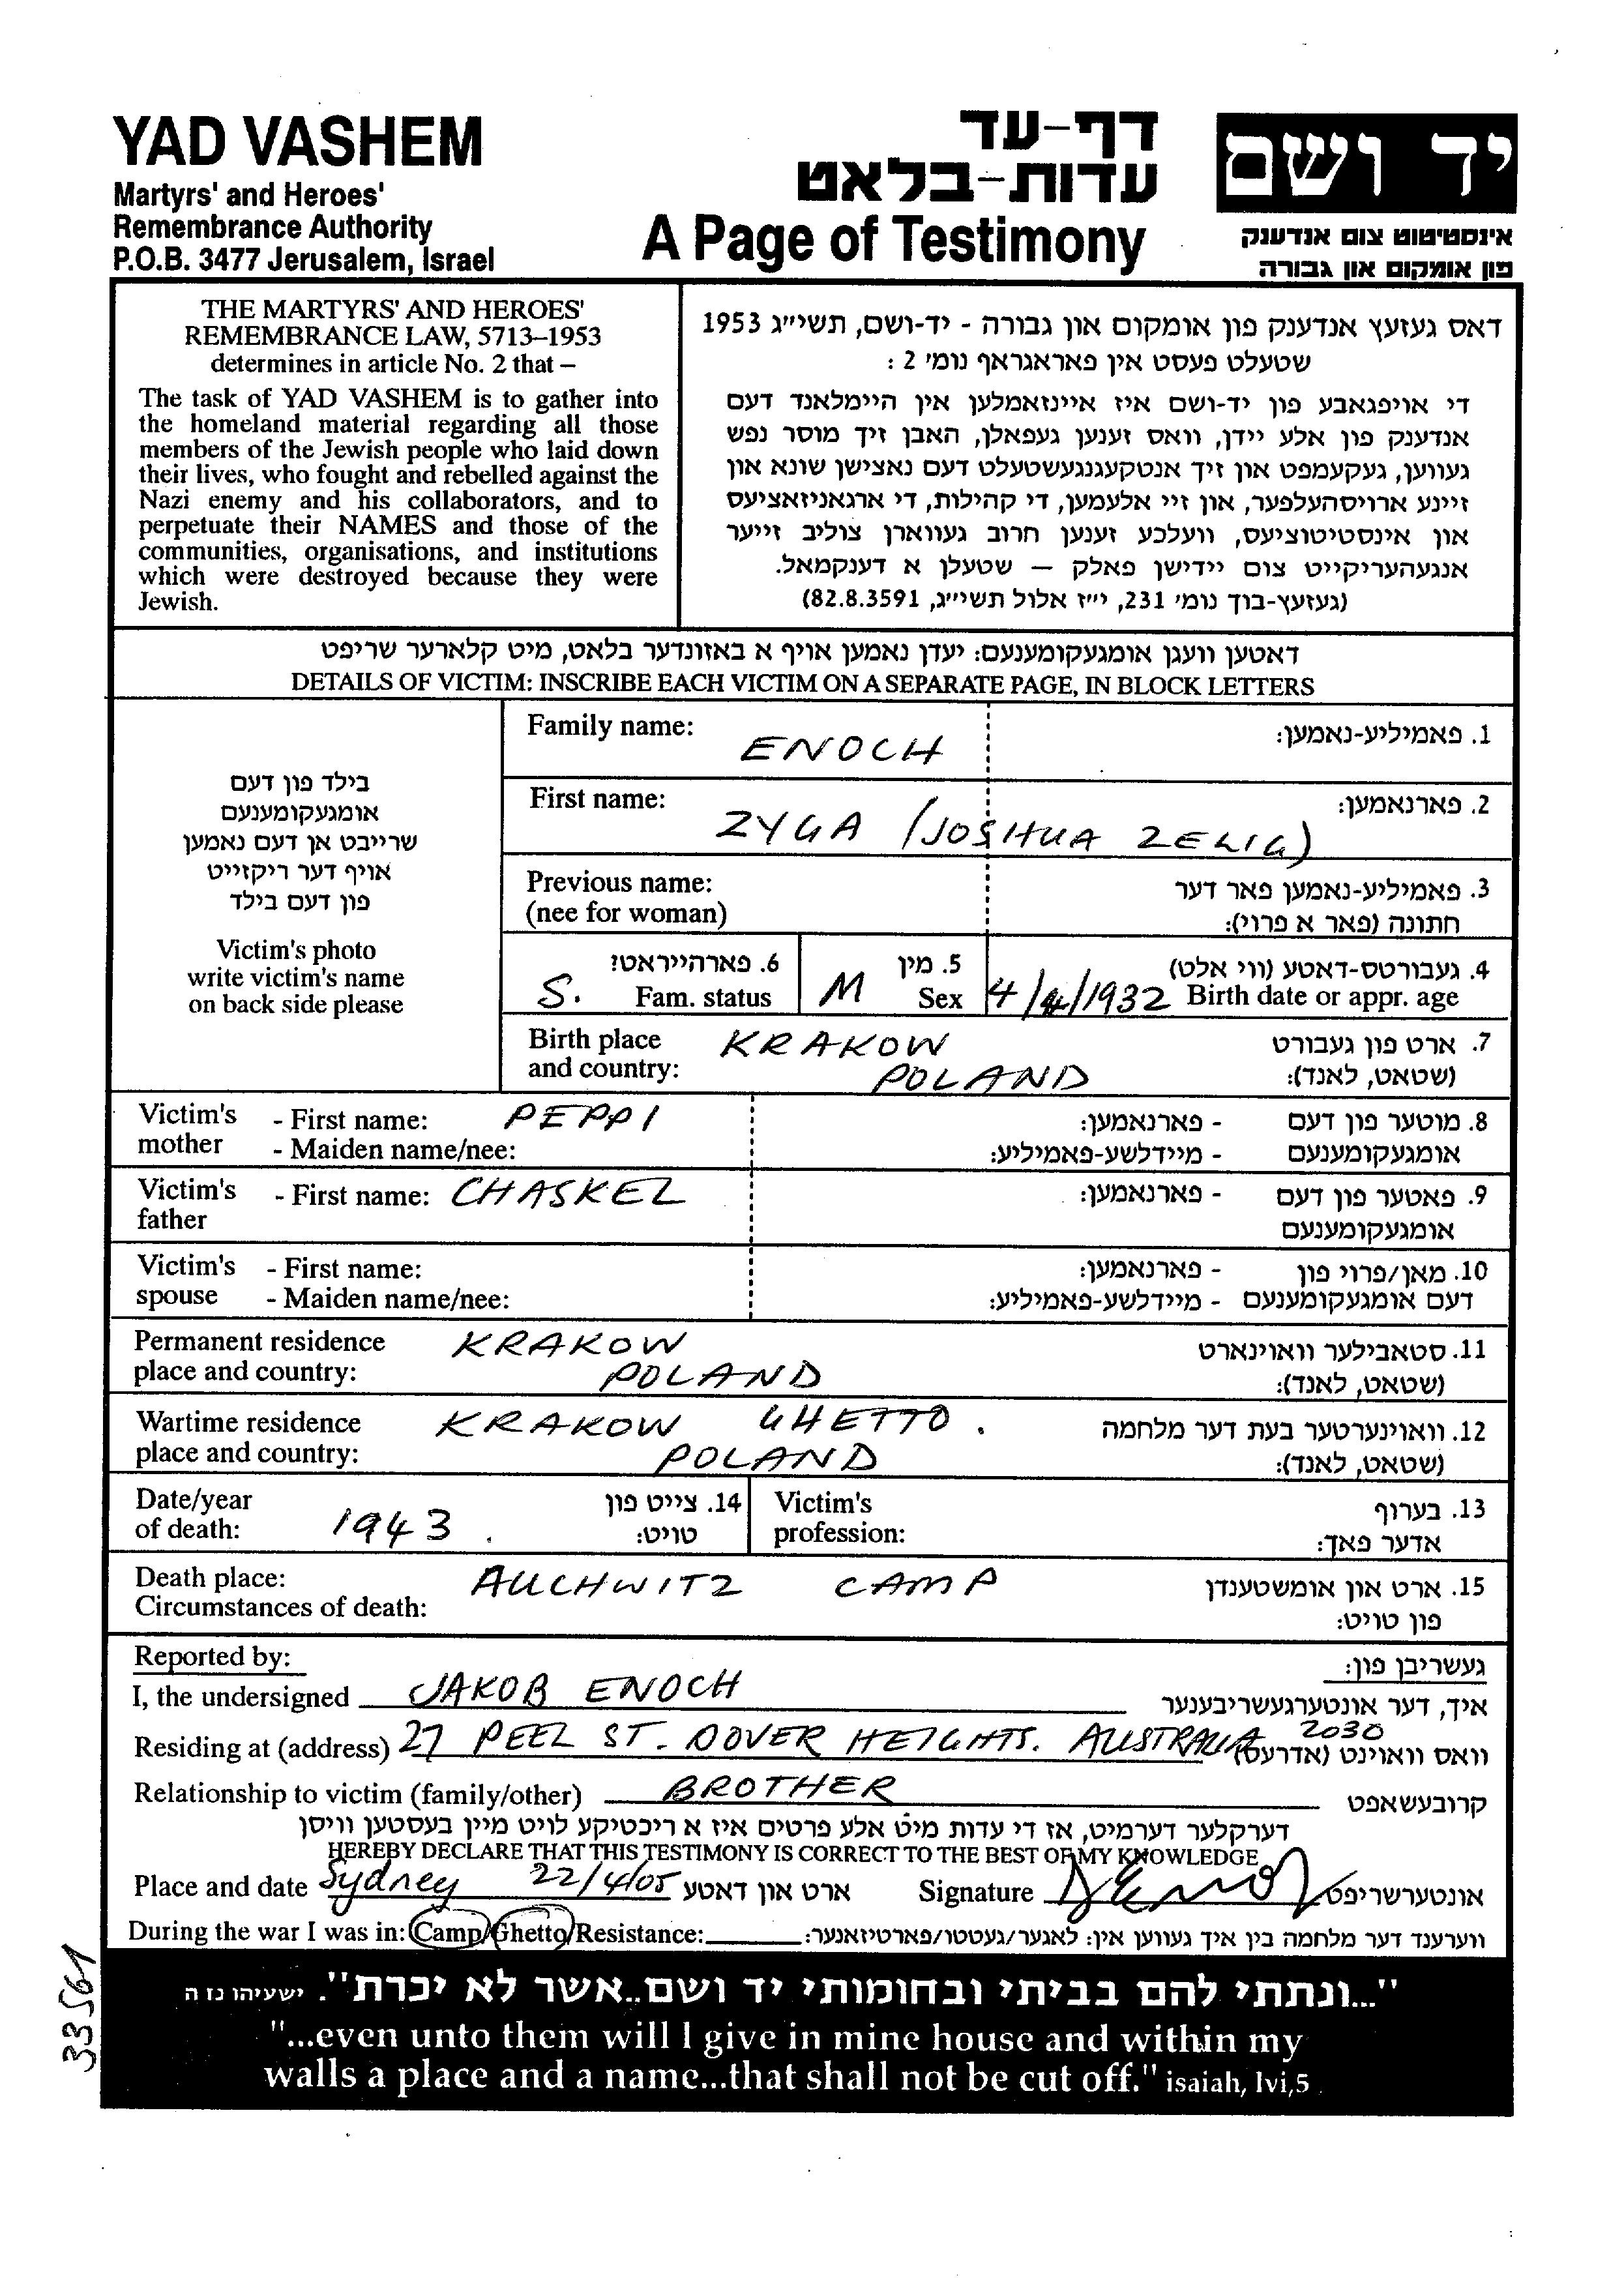 YAD VASHEM
Martyrs' and Heroes'
Remembrance Authority
P.O.B. 3477 Jerusalem, Israel
דף-עד
עדות-בלאט
A Page of Testimony
יד ושם
אינסטיטוט צום אנדענק
פון אומקום און גבורה
THE MARTYRS' AND HEROES'
REMEMBRANCE LAW, 5713–1953
determines in article No. 2 that –
The task of YAD VASHEM is to gather into
the homeland material regarding all those
members of the Jewish people who laid down
their lives, who fought and rebelled against the
Nazi enemy and his collaborators, and to
perpetuate their NAMES and those of the
communities, organisations, and institutions
which were destroyed because they were
Jewish.
דאס געזעץ אנדענק פון אומקום און גבורה - יד-ושם, תשי״ג 1953
שטעלט פעסט אין פאראגראף נומ׳ 2 :
די אויפגאבע פון יד-ושם איז איינזאמלען אין היימלאנד דעם
אנדענק פון אלע יידן, וואס זענען געפאלן, האבן זיך מוסר נפש
געווען, געקעמפט און זיך אנטקעגנגעשטעלט דעם נאצישן שונא און
זיינע ארויסהעלפער, און זיי אלעמען, די קהילות, די ארגאניזאציעס
און אינסטיטוציעס, וועלכע זענען חרוב געווארן צוליב זייער
אנגעהעריקייט צום יידישן פאלק — שטעלן א דענקמאל.
(געזעץ-בוך נומ׳ 231, י״ז אלול תשי״ג, 82.8.3591)
דאטען וועגן אומגעקומענעם: יעדן נאמען אויף א באזונדער בלאט, מיט קלארער שריפט
DETAILS OF VICTIM: INSCRIBE EACH VICTIM ON A SEPARATE PAGE, IN BLOCK LETTERS
בילד פון דעם
אומגעקומענעם
שרייבט אן דעם נאמען
אויף דער ריקזייט
פון דעם בילד
Victim's photo
write victim's name
on back side please
Family name: ENOCH 1. פאמיליע-נאמען:
First name: ZYGA (JOSHUA ZELIG) 2. פארנאמען:
Previous name: 3. פאמיליע-נאמען פאר דער
(nee for woman) חתונה (פאר א פרוי):
6. פארהייראט? 5. מין 4. געבורטס-דאטע (ווי אלט)
S. Fam. status M Sex 4/4/1932 Birth date or appr. age
Birth place KRAKOW 7. ארט פון געבורט
and country: POLAND (שטאט, לאנד):
Victim's - First name: PEPPI - פארנאמען: 8. מוטער פון דעם
mother - Maiden name/nee: - מיידלשע-פאמיליע: אומגעקומענעם
Victim's - First name: CHASKEL - פארנאמען: 9. פאטער פון דעם
father אומגעקומענעם
Victim's - First name: - פארנאמען: 10. מאן/פרוי פון
spouse - Maiden name/nee: - מיידלשע-פאמיליע: דעם אומגעקומענעם
Permanent residence KRAKOW 11. סטאבילער וואוינארט
place and country: POLAND (שטאט, לאנד):
Wartime residence KRAKOW GHETTO. 12. וואוינערטער בעת דער מלחמה
place and country: POLAND (שטאט, לאנד):
Date/year 14. צייט פון Victim's 13. בערוף
of death: 1943. טויט: profession: אדער פאך:
Death place: AUCHWITZ CAMP 15. ארט און אומשטענדן
Circumstances of death: פון טויט:
Reported by: געשריבן פון:
I, the undersigned JAKOB ENOCH איך, דער אונטערגעשריבענער
Residing at (address) 27 PEEL ST. DOVER HEIGHTS. AUSTRALIA 2030 וואס וואוינט (אדרעס)
Relationship to victim (family/other) BROTHER קרובעשאפט
דערקלער דערמיט, אז די עדות מיט אלע פרטים איז א ריכטיקע לויט מיין בעסטען וויסן
HEREBY DECLARE THAT THIS TESTIMONY IS CORRECT TO THE BEST OF MY KNOWLEDGE
Place and date Sydney 22/4/05 ארט און דאטע Signature אונטערשריפט
During the war I was in: Camp/Ghetto/Resistance: ווערענד דער מלחמה בין איך געווען אין: לאגער/געטטו/פארטיזאנער:
"...ונתתי להם בביתי ובחומותי יד ושם..אשר לא יכרת". ישעיהו נז ה
"...even unto them will I give in mine house and within my
walls a place and a name...that shall not be cut off." isaiah, lvi,5
33561